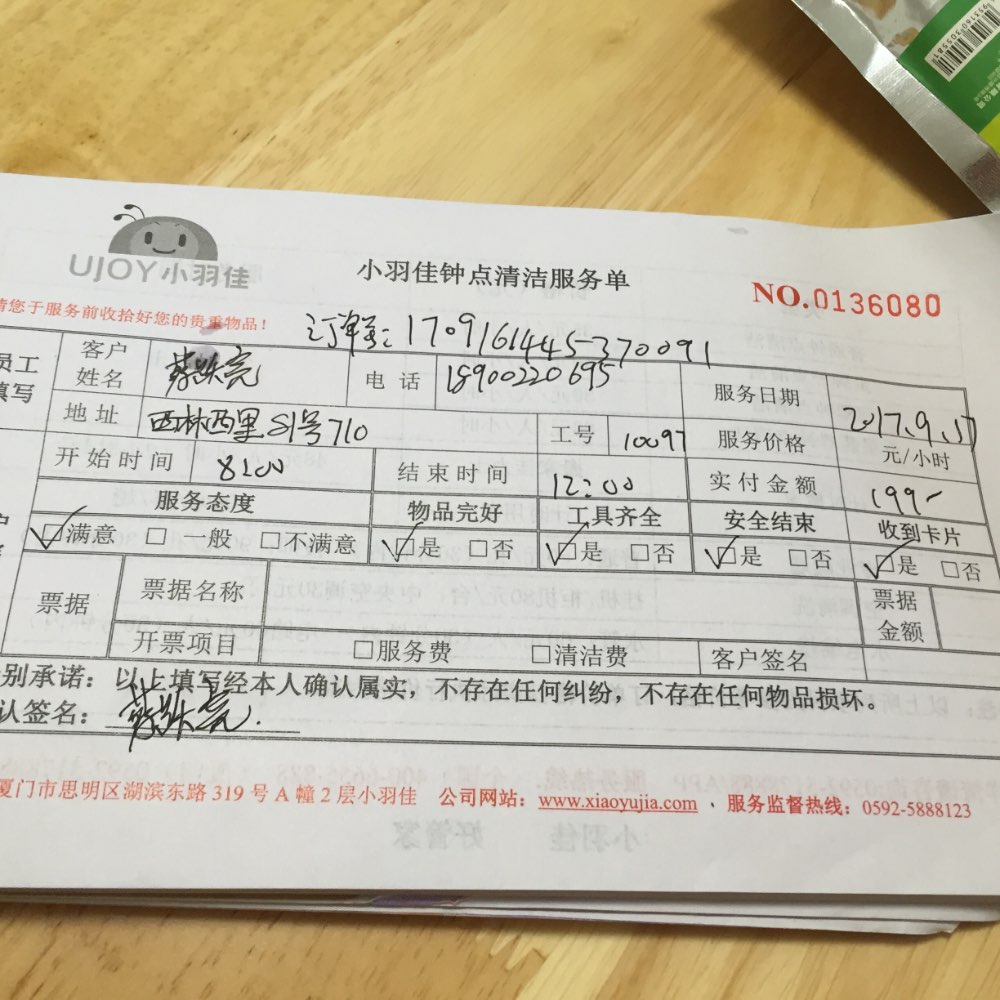 UJOY小羽佳
小羽佳钟点清洁服务单
NO.0136080
请您于服务前收拾好您的贵重物品!
订单号:170916144537009​1
员工
填写
客户
姓名
电话 18900220695
服务日期 2017.9.17
地址 西林西里81号710
工号 10097
服务价格 元/小时
开始时间 8:00
结束时间 12:00
实付金额 199-
服务态度 物品完好 工具齐全 安全结束 收到卡片
☑满意 □一般 □不满意 ☑是 □否 ☑是 □否 ☑是 □否 ☑是 □否
票据
票据名称
票据
金额
开票项目 □服务费 □清洁费 客户签名
别承诺:以上填写经本人确认属实,不存在任何纠纷,不存在任何物品损坏。
认签名:
厦门市思明区湖滨东路319号A幢2层小羽佳 公司网站:www.xiaoyujia.com、服务监督热线:0592-5888123